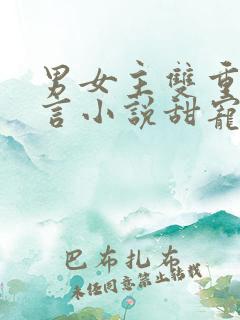 男女主雙重
言小說甜寵
巴布扎布
未经同意禁止转载